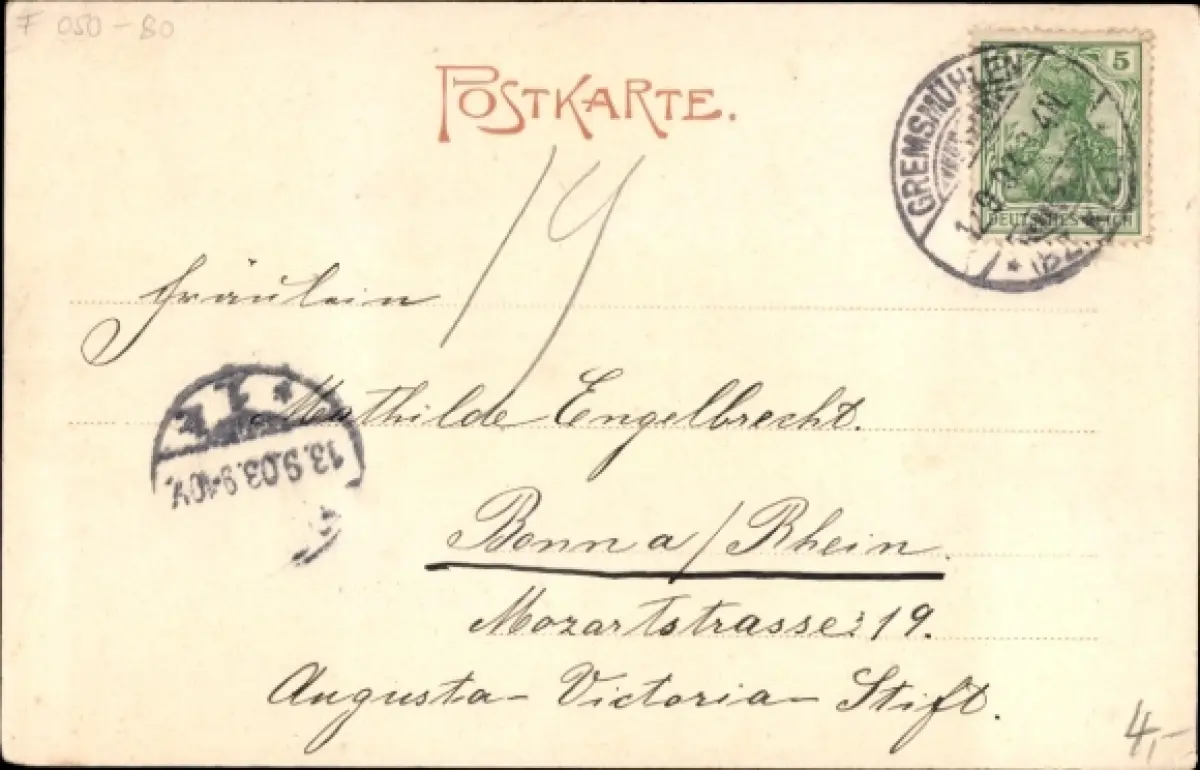 F 050-80
POSTKARTE.
5
GREMSMÜHLEN
DEUTSCHES REICH
19
Fräulein
Mathilde Engelbrecht.
* 1 E
13.9.03.9-10V.
Bonn a/Rhein.
Mozartstrasse: 19.
Augusta-Victoria-Stift.
4,-